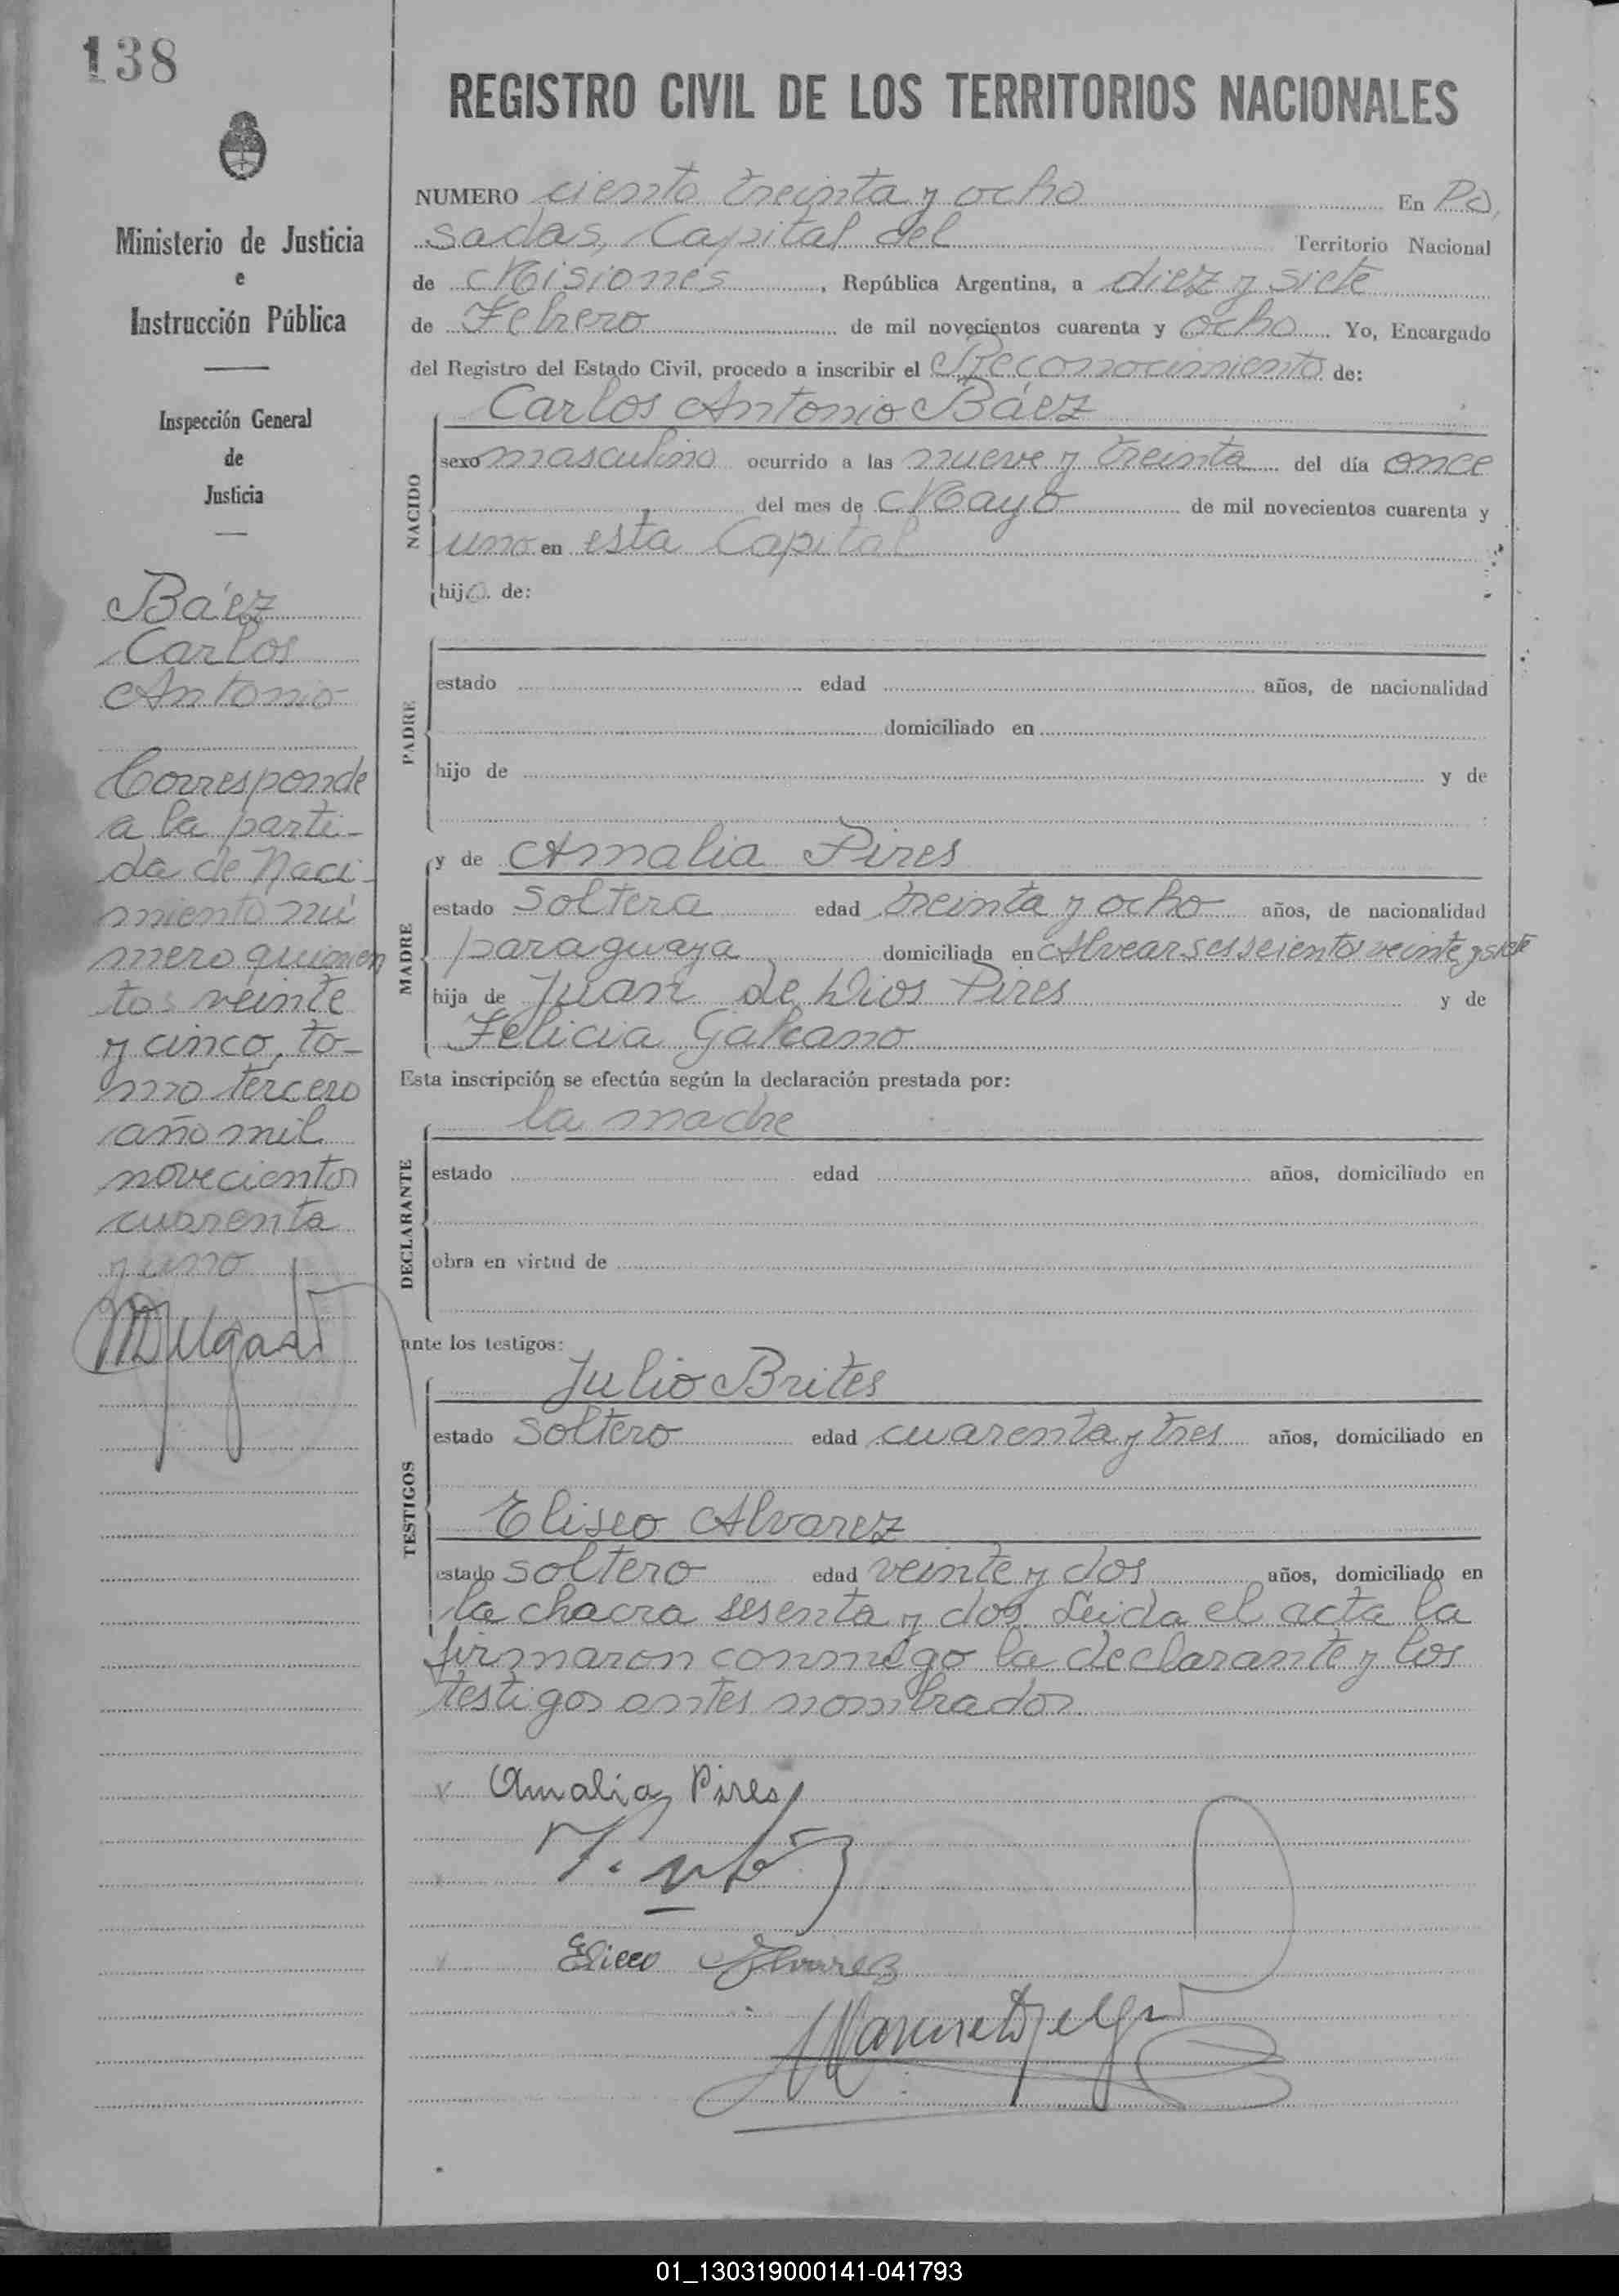 138
REGISTRO CIVIL DE LOS TERRITORIOS NACIONALES
Ministerio de Justicia
e
Instrucción Pública
Inspección General
de
Justicia
Báez
Carlos
Antonio
Corresponde
a la parti-
da de Naci-
miento nú
mero quinien
tos veinte
y cinco, to-
mo tercero
año mil
novecientos
cuarenta
y uno
NUMERO ciento treinta y ocho En Po,
sadas, Capital del Territorio Nacional
de Misiones, República Argentina, a diez y siete
de Febrero de mil novecientos cuarenta y ocho Yo, Encargado
del Registro del Estado Civil, procedo a inscribir el Reconocimiento de:
Carlos Antonio Báez
NACIDO
sexo masculino ocurrido a las nueve y treinta del día once
del mes de Mayo de mil novecientos cuarenta y
uno en esta Capital
hijo de:
PADRE
estado edad años, de nacionalidad
domiciliado en
hijo de y de
MADRE
y de Amalia Pires
estado soltera edad treinta y ocho años, de nacionalidad
paraguaya domiciliada en Alvear sesseiento veinte y siete
hija de Juan de Dios Pires y de
Felicia Galeano
Esta inscripción se efectúa según la declaración prestada por:
la madre
DECLARANTE
estado edad años, domiciliado en
obra en virtud de
ante los testigos:
TESTIGOS
Julio Brites
estado soltero edad cuarenta y tres años, domiciliado en
Eliseo Alvarez
estado soltero edad veinte y dos años, domiciliado en
la chacra sesenta y dos. Leida el acta la
firmaron conmigo la declarante y los
testigos antes nombrados
Amalia Pires
Eliceo Alvarez
01_130319000141-041793